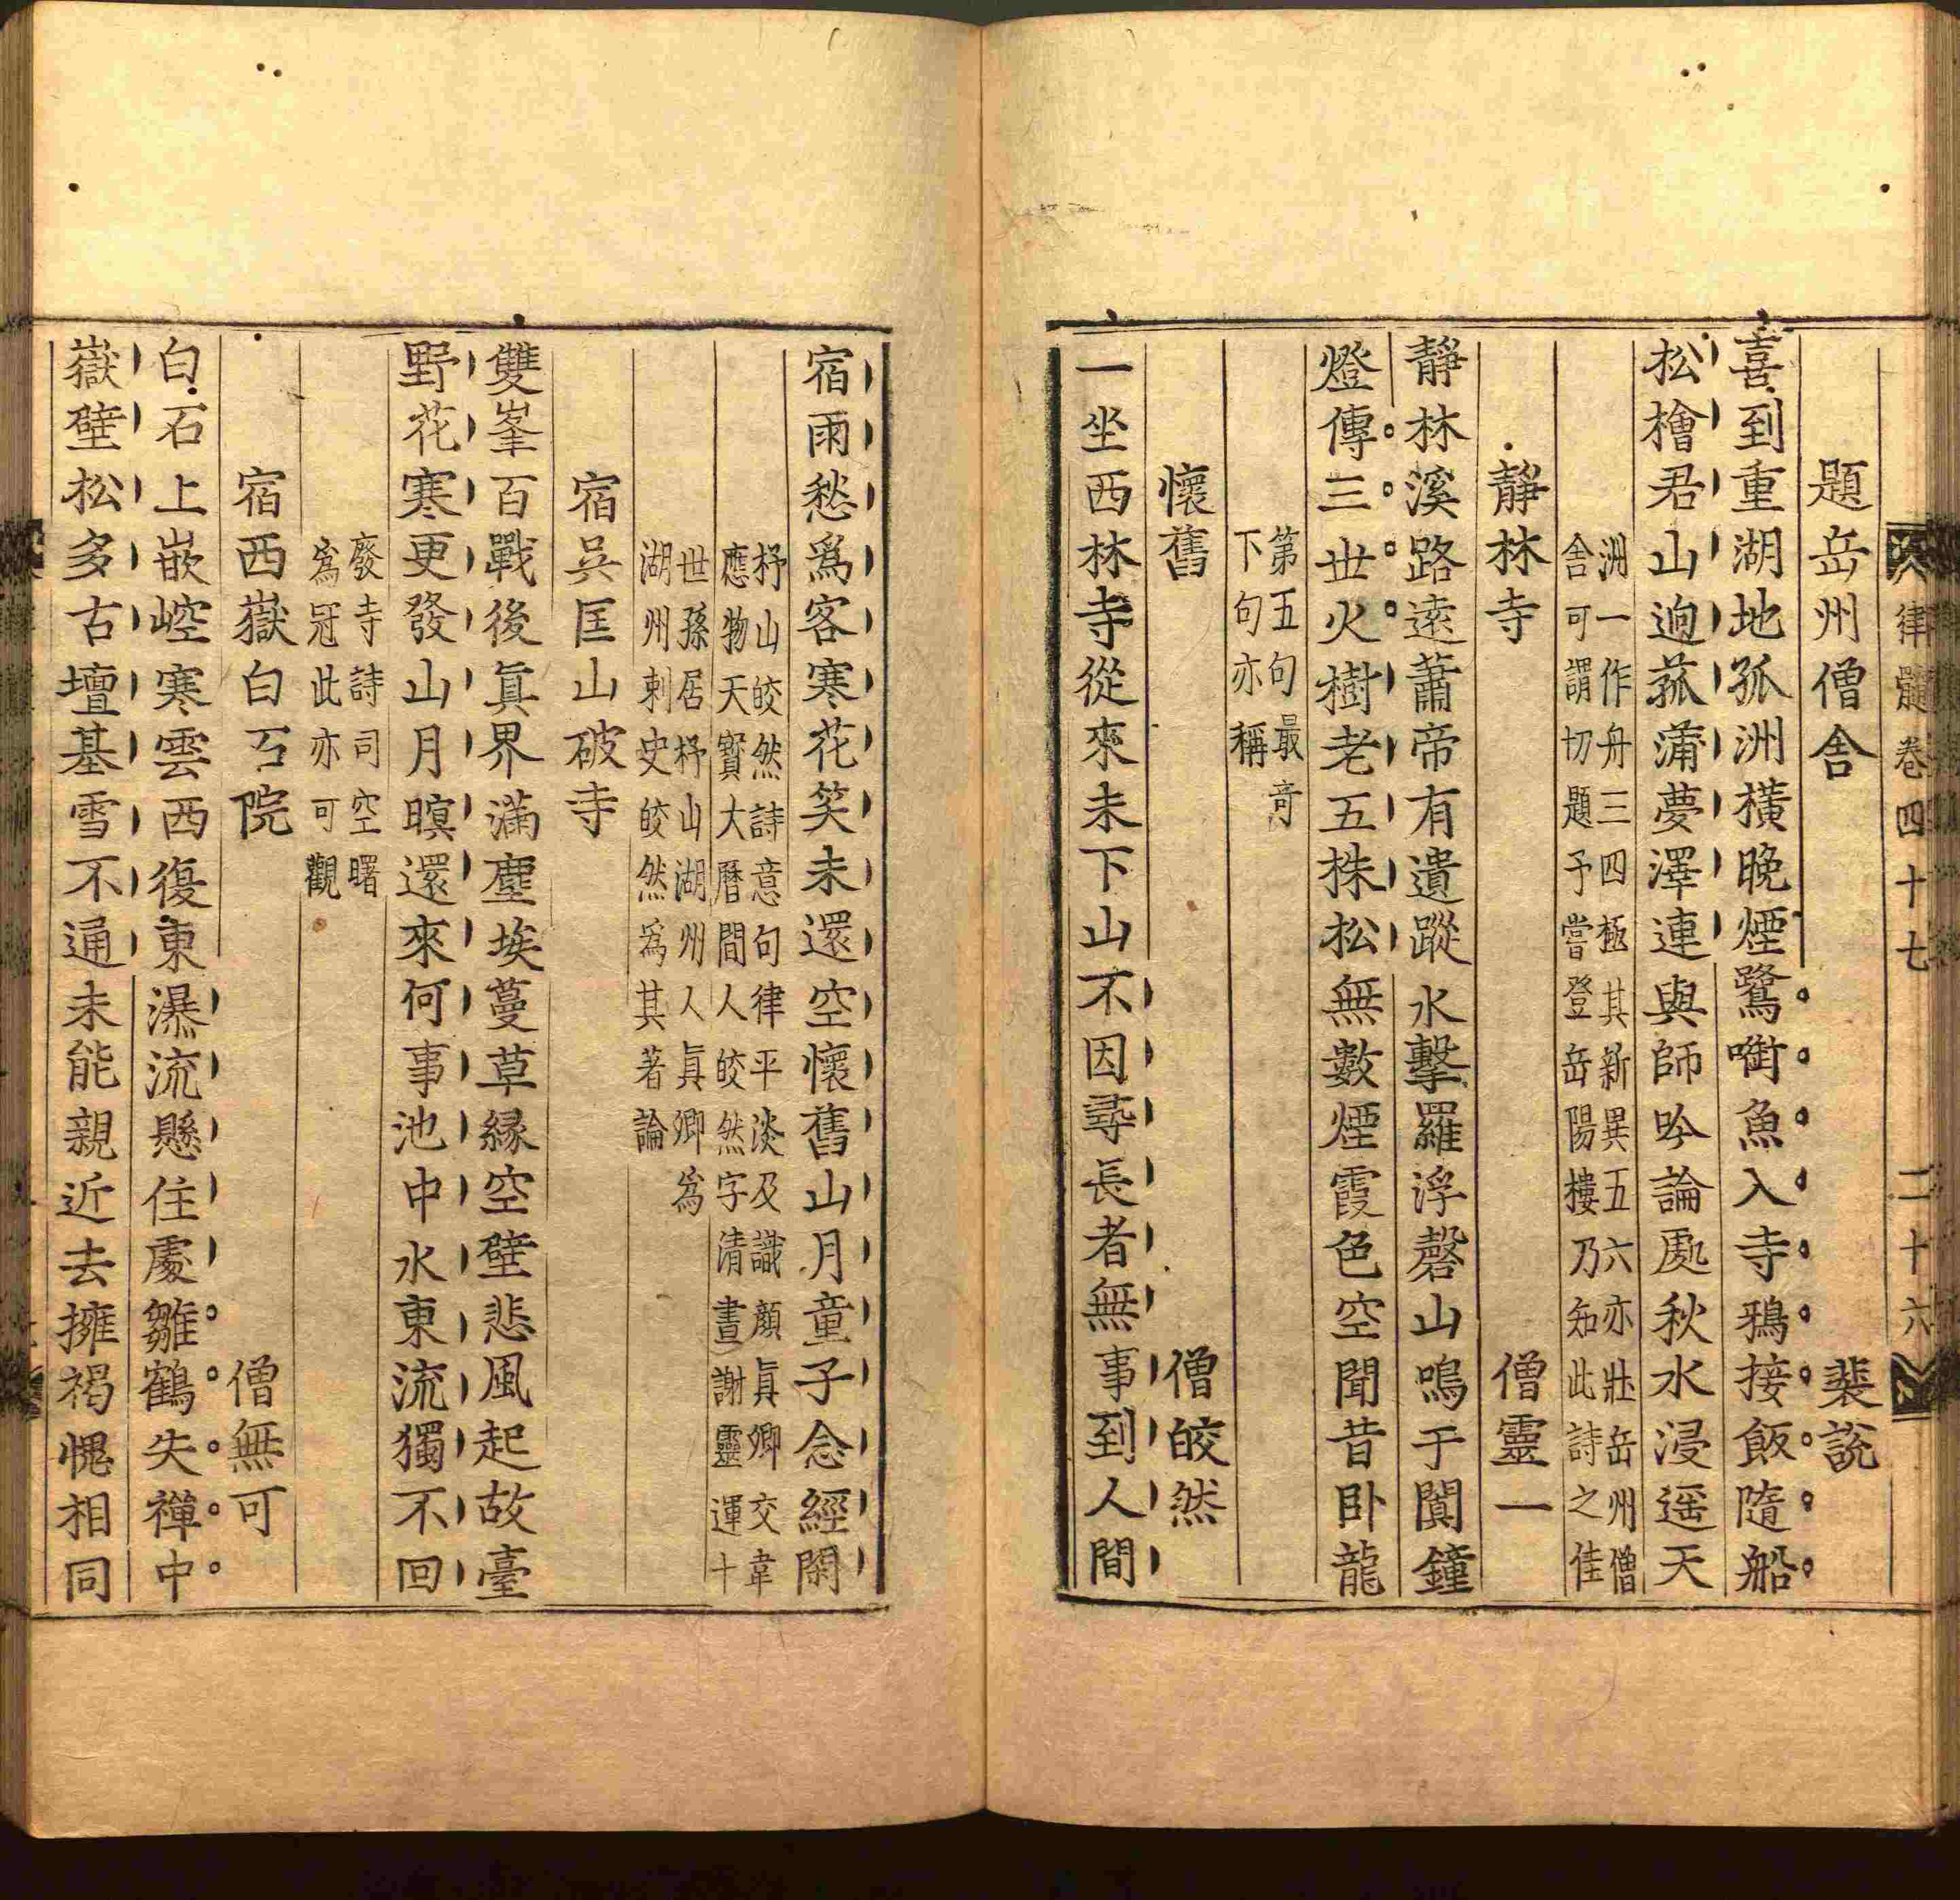 律髓卷四十七 二十六
題岳州僧舍 裴說
喜到重湖地孤洲橫晚煙鷺㗸魚入寺鴉接飯隨船
松檜君山逈菰蒲夢澤連與師吟論處秋水浸遥天
洲一作舟三四極其新異五六亦壯岳州僧
舍可謂切題予嘗登岳陽樓乃知此詩之佳
靜林寺 僧靈一
靜林溪路遠蕭帝有遺蹤水擊羅浮磬山鳴于闐鐘
燈傳三世火樹老五株松無數煙霞色空聞昔卧龍
第五句最奇
下句亦稱
懷舊 僧皎然
一坐西林寺從來未下山不因尋長者無事到人間
宿雨愁爲客寒花笑未還空懷舊山月童子念經閑
杼山皎然詩意句律平淡及識顏眞卿交韋
應物天寶大曆間人皎然字清晝謝靈運十
世孫居杼山湖州人眞卿爲
湖州刺史皎然爲其著論
宿吳匡山破寺
雙峯百戰後眞界滿塵埃蔓草縁空壁悲風起故臺
野花寒更發山月暝還來何事池中水東流獨不回
廢寺詩司空曙
爲冠此亦可觀
宿西嶽白石院 僧無可
白石上嵌崆寒雲西復東瀑流懸住處雛鶴失禪中
嶽壁松多古壇基雪不通未能親近去擁褐愧相同